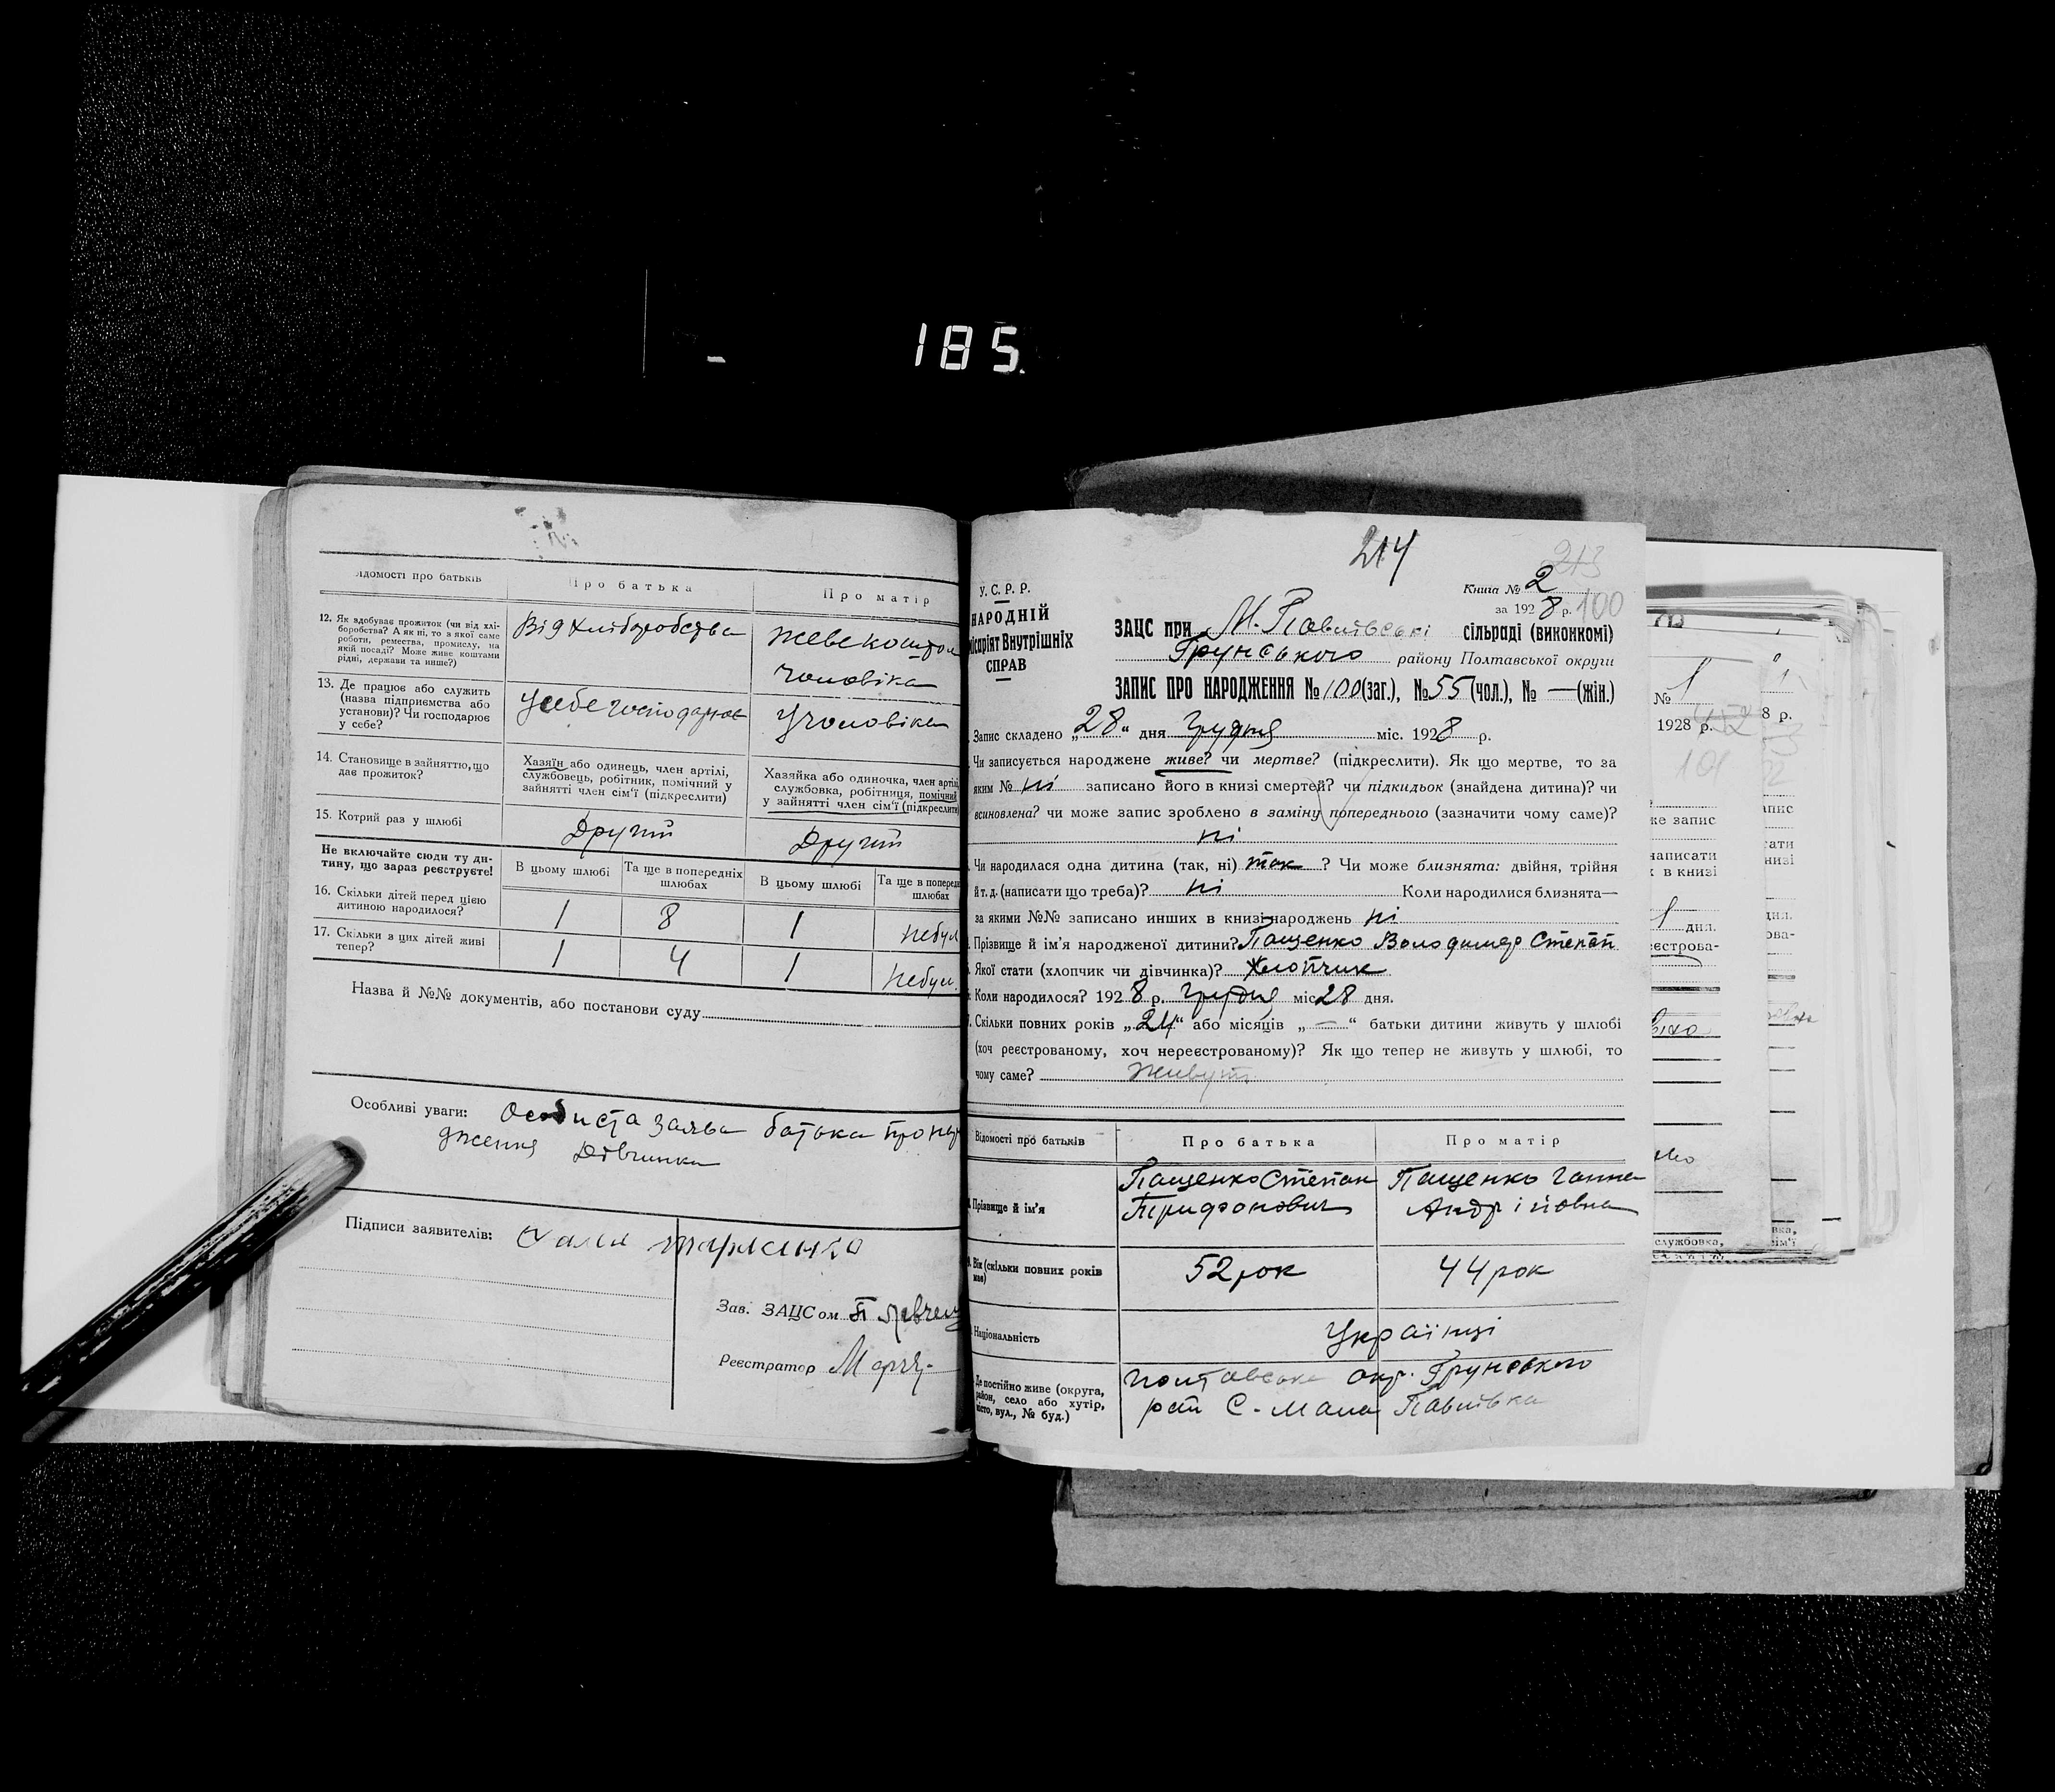 185.
Відомості про батьків
Про батька
Про матір
12. Як здобуває прожиток (чи від хлі-
боробства? А як ні, то з якої саме
роботи, ремества, промислу, на
якій посаді? Може живе коштами
рідні, держави та инше?)
Від хліборобства
живе коштом
чоловіка
13. Де працює або служить
(назва підприємства або
установи)? Чи господарює
у себе?
У себе господарює
У чоловіка
14. Становище в зайняттю, що
дає прожиток?
Хазяїн або одинець, член артілі,
службовець, робітник, помічний у
зайнятті член сім'ї (підкреслити)
Хазяйка або одиночка, член артілі,
службовка, робітниця, помічний
у зайнятті член сім'ї (підкреслити)
15. Котрий раз у шлюбі
Другий
Другий
Не включайте сюди ту ди-
тину, що зараз реєструєте!
В цьому шлюбі
Та ще в попередніх
шлюбах
В цьому шлюбі
Та ще в поперед
шлюбах
16. Скільки дітей перед цією
дитиною народилося?
1
8
1
небул
17. Скільки з цих дітей живі
тепер?
1
4
1
небул.
Назва й №№ документів, або постанови суду
Особливі уваги: Особиста заява батька про нар
дження Дівчинки
Підписи заявителів:
Зав. ЗАЦСом
Реєстратор
214
213
У.С.Р.Р.
НАРОДНІЙ
місаріят Внутрішніх
СПРАВ
Книга № 2
за 1928 р. 100
ЗАЦС при М. Павлівські сільраді (виконкомі)
Грунського району Полтавської округи
ЗАПИС ПРО НАРОДЖЕННЯ № 100 (заг.), № 55 (чол.), № — (жін.)
Запис складено „28" дня Грудня міс. 1928 р.
Чи записується народжене живе? чи мертве? (підкреслити). Як що мертве, то за
яким № ні записано його в книзі смертей? чи підкидьок (знайдена дитина)? чи
всиновлена? чи може запис зроблено в заміну попереднього (зазначити чому саме)?
ні
Чи народилася одна дитина (так, ні) так ? Чи може близнята: двійня, трійня
й т. д. (написати що треба)? ні Коли народилися близнята—
за якими №№ записано инших в книзі народжень ні
Прізвище й ім'я народженої дитини? Пащенко Володимер Степан
Якої стати (хлопчик чи дівчинка)? Хлопчик
Коли народилося? 1928 р. Грудня міс 28 дня.
Скільки повних років „24" або місяців „—" батьки дитини живуть у шлюбі
(хоч реєстрованому, хоч нереєстрованому)? Як що тепер не живуть у шлюбі, то
чому саме? Живут
Відомості про батьків
Про батька
Про матір
Прізвище й ім'я
Пащенко Степан
Трифонович
Пащенко Ганна
Андріївна
Вік (скільки повних років
має)
52 рок
44 рок
Національність
Українці
Де постійно живе (округа,
район, село або хутір,
місто, вул., № буд.)
Полтавська окр. Грунського
рай С. Мала Павлівка
№ 1
1928 р.
101
8 р.